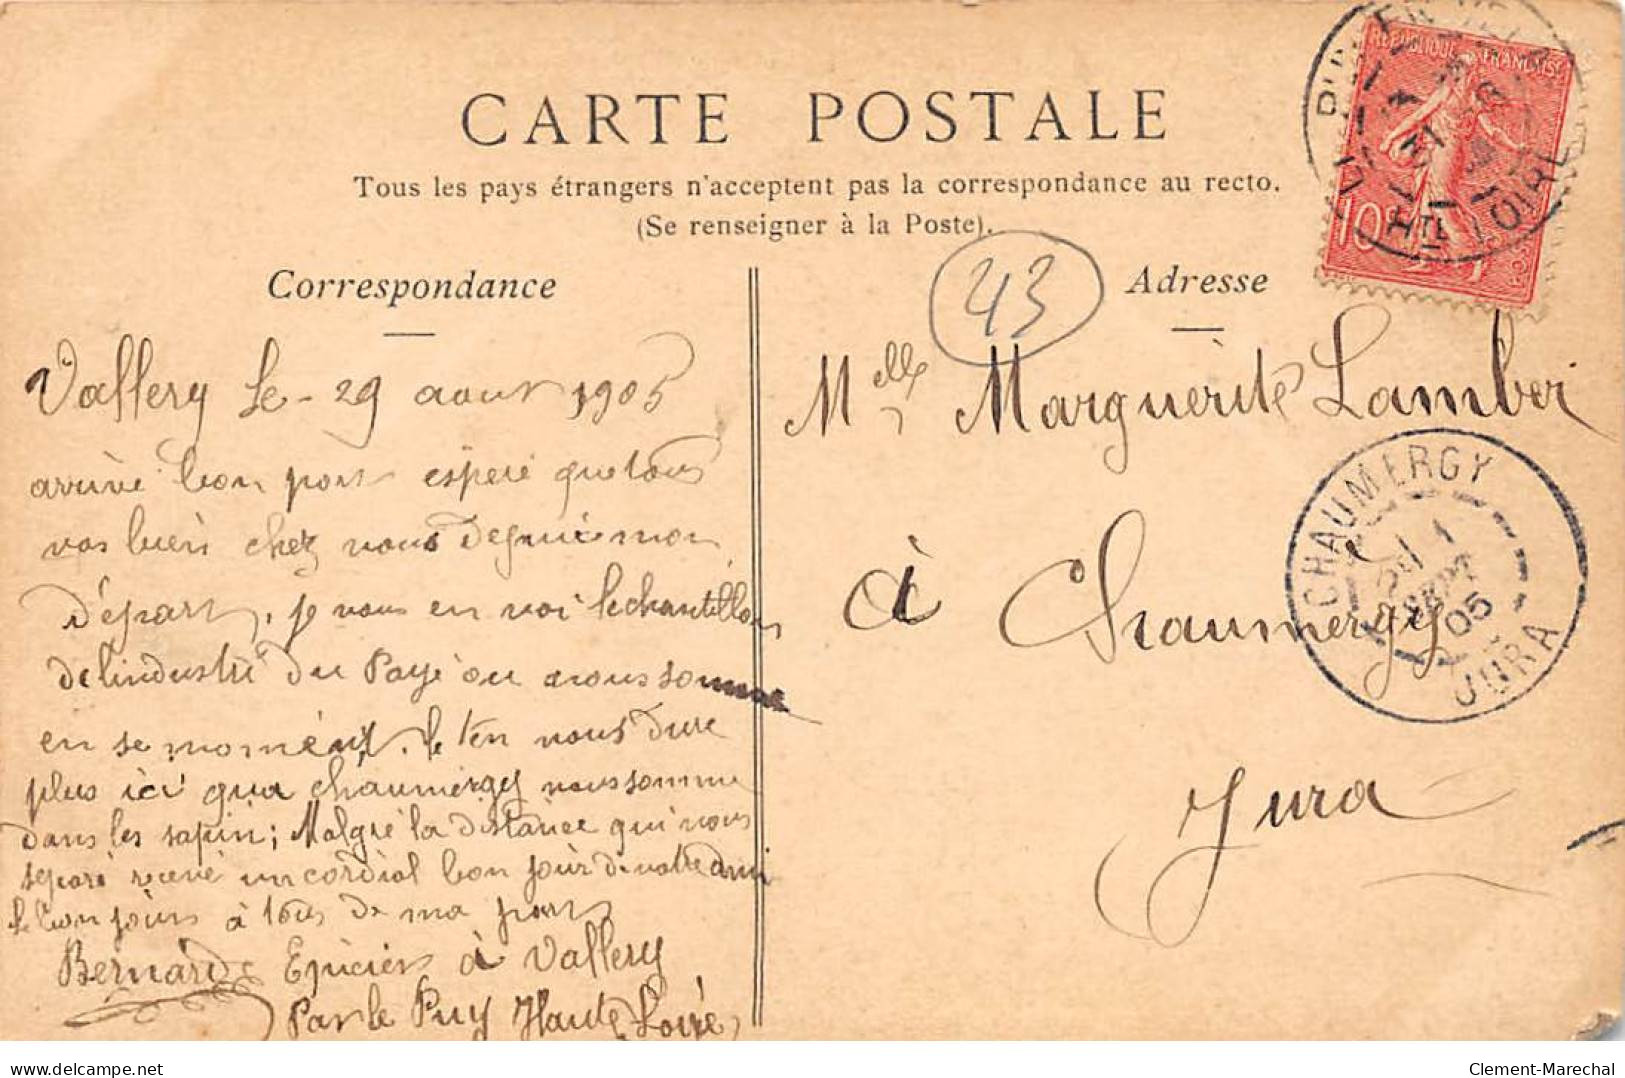 CARTE POSTALE
Tous les pays étrangers n'acceptent pas la correspondance au recto.
(Se renseigner à la Poste).
Correspondance
Adresse
43
REPUBLIQUE FRANÇAISE
10
HTE LOIRE
Vallery le - 29 aout 1905
arrivé bon port espere que tous
vas bien chez vous Depuis mon
Départ, je vous en voi lechantillon
de lindustri du Paye ou nous somme
en se moment. le ten nous dure
plus ici qua chaumergy nous somme
dans les sapin; Malgré la distance qui nous
séparé recevé un cordial bon jour de votre ami
le bon jours à tous de ma part
Bernard Epicier à Vallery
Par le Puy Haute Loire
Melle Marguerite Lambert
à Chaumergy
Jura
CHAUMERGY
1
SEPT
05
JURA
delcampe.net
Clement-Marechal